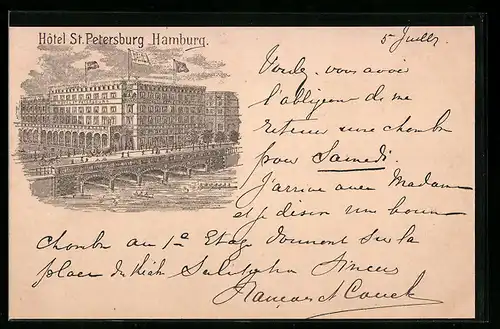 Hôtel St. Petersburg Hamburg.
5 Juillt
Voulez-vous avoir
l'obligeance de me
retenir une chambre
pour Samedi.
J'arrive avec Madame
et je désire une bonne
chambre au 1er Etage donnant sur la
place du
Salutation sincères